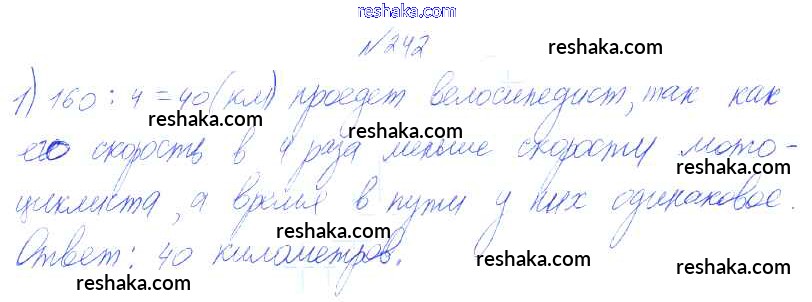 reshaka.com
№242
reshaka.com reshaka.com
1) 160 : 4 = 40 (км) проедет велосипедист, так как
reshaka.com
его скорость в 4 раза меньше скорости мото-
reshaka.com
циклиста, а время в пути у них одинаковое.
reshaka.com reshaka.com
Ответ: 40 километров.
reshaka.com reshaka.com